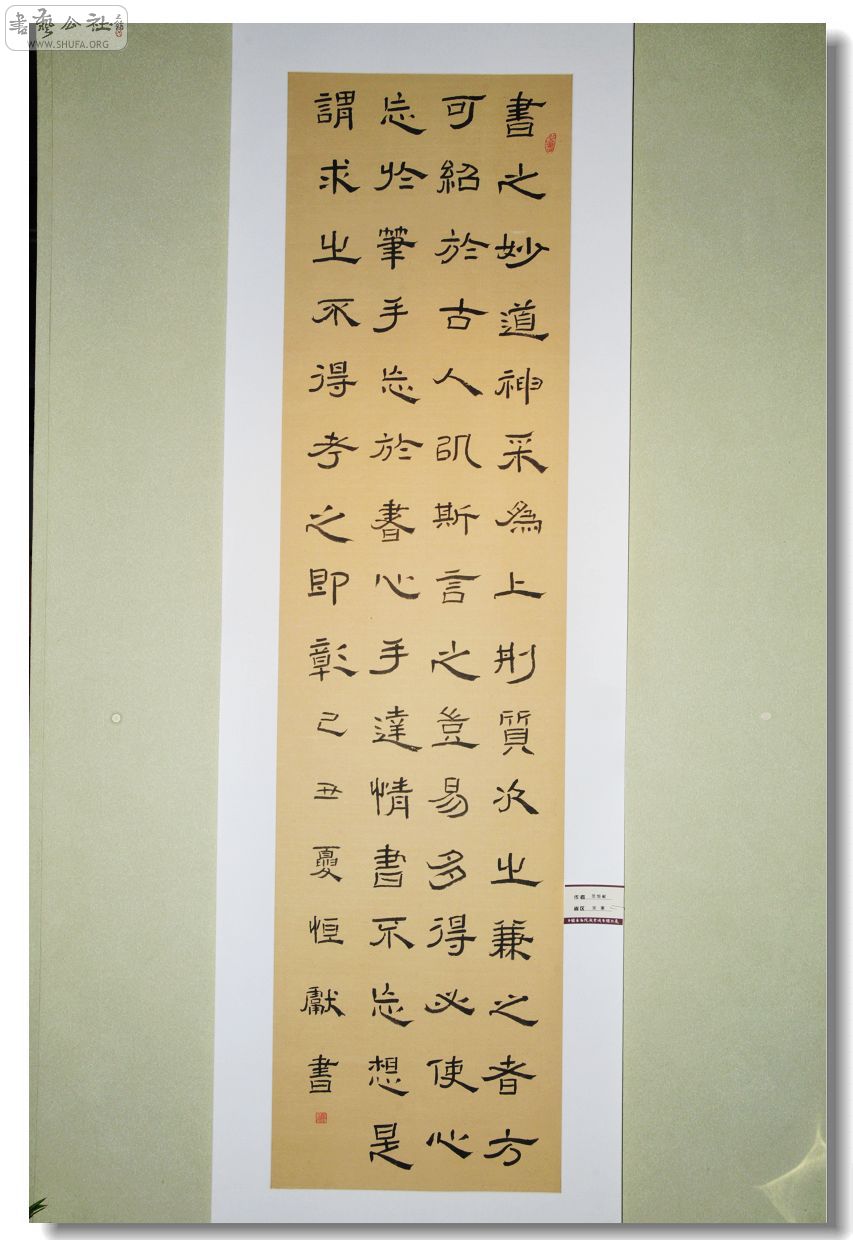 書藝公社
WWW.SHUFA.ORG
書之妙道神采為上形質次之兼之者方
可紹於古人以斯言之豈易多得必使心
忘於筆手忘於書心手達情書不忘想是
謂求之不得考之即彰己丑夏恒獻書
作者
地区